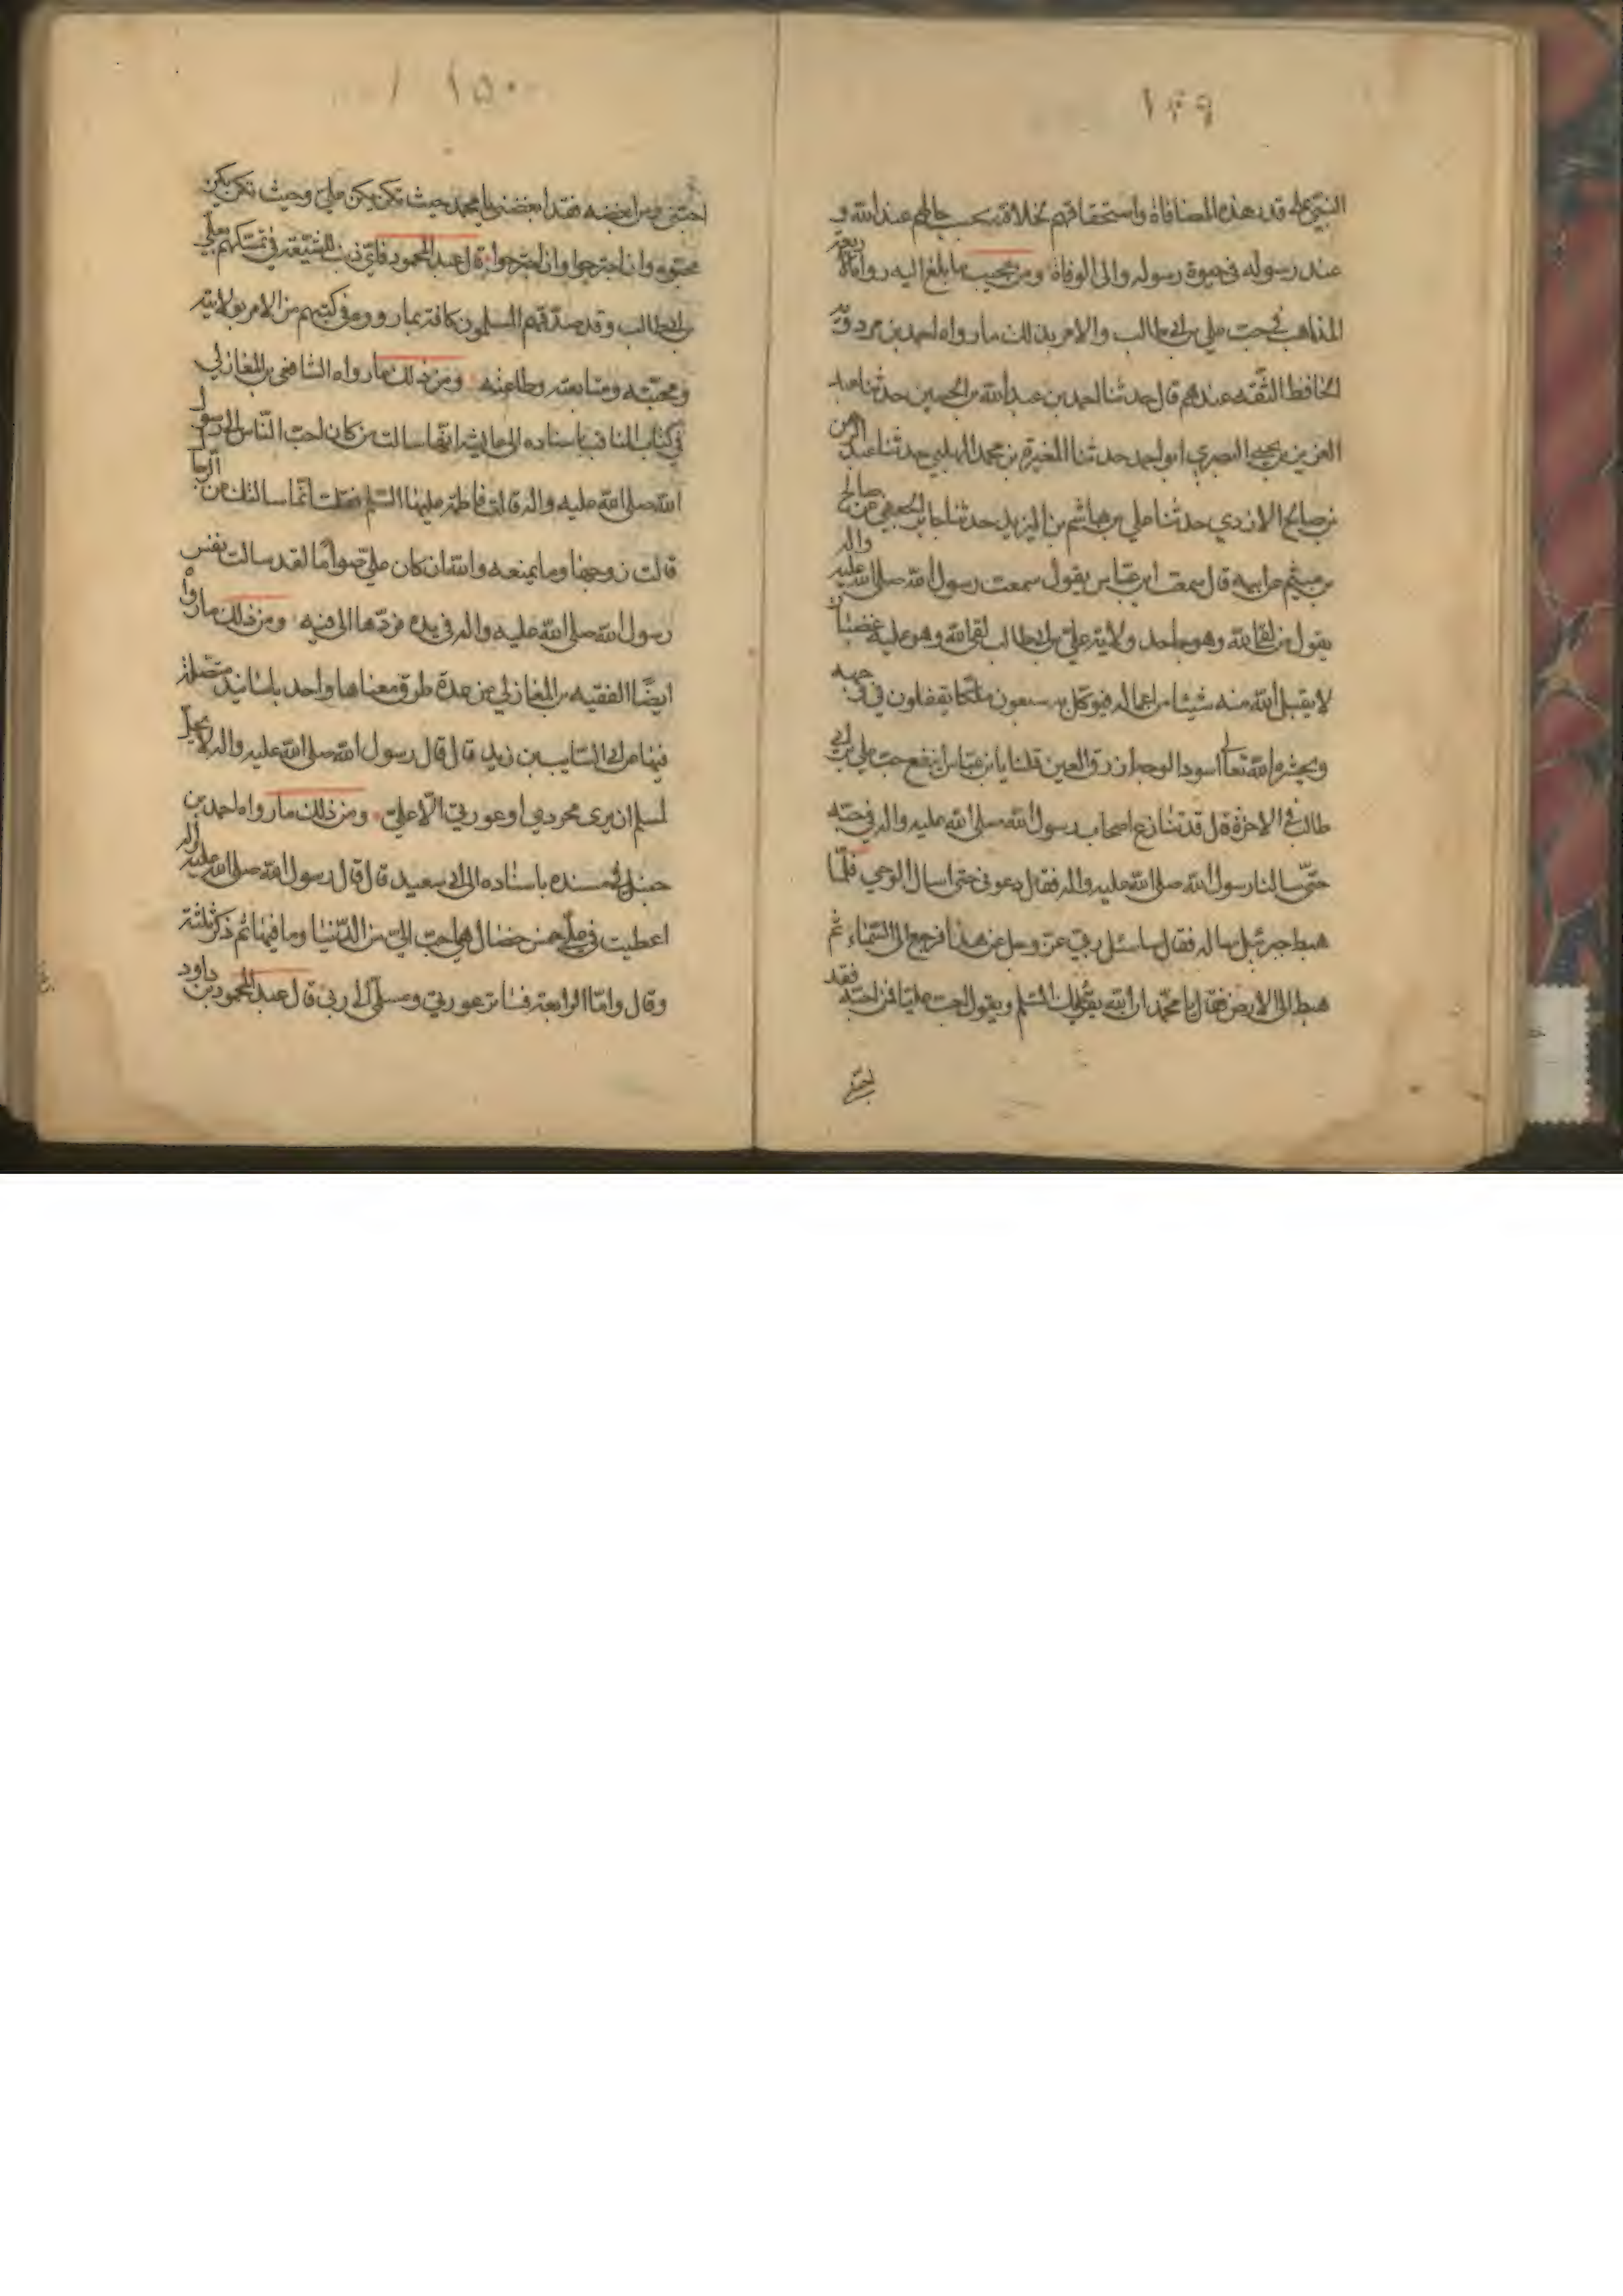 ١٤٩
النبي على قدر هذه المصافاة واستحقاقهم لخلافة بحب حالهم عند الله و
عند رسوله في حيوة رسوله والى الوفاة ومن عجيب ما بلغ اليه رواة الأربعة
المذاهب في حب علي بن ابي طالب والامر بذلك ما رواه احمد بن مردويه
الحافظ الثقه عندهم قال حدثنا احمد بن عبد الله بن الحسين حدثنا عبد
العزيز بن يحيى البصري ابو احمد حدثنا المغيرة بن محمد المهلبي حدثنا عبد الرحمن
بن صالح الازدي حدثنا علي بن هاشم بن اليزيد حدثنا جابر الجعفي عن صالح
بن ميثم عن ابيه قال سمعت ابن عباس يقول سمعت رسول الله صلى الله عليه واله
يقول من لقا الله وهو جاحد ولاية علي بن ابي طالب لقا الله وهو عليه غضبان
لا يقبل الله منه شيئا من اعماله فيوكل به سبعون ملكا يتفلون في وجهه
ويحشره الله تعالى اسود الوجه ازرق العين قلنا يا بن عباس اينفع حب علي بن ابي
طالب في الاخرة قال قد تنازع اصحاب رسول الله صلى الله عليه واله في حبه
حتى سالنا رسول الله صلى الله عليه واله فقال دعوني حتى اسال الوحي فلما
هبط جبرئيل ساله فقال اسائل ربي عز وجل عن هذا فرجع الى السماء ثم
هبط الى الارض فقال يا محمد ان الله يقرئك السلم ويقول احب عليا فمن احبه فقد
احبني
١٥٠
احبني ومن ابغضه فقد ابغضني يا محمد حيث تكن يكن علي وحيث تكن يكن
محبوه وان اجترحوا وان اجترحوا قال عبد المحمود فاي ذنب للشيعة في تمسكهم بعلي
بن ابي طالب وقد صدقهم المسلمون كافة بما رووه في كتبهم من الامر بولايته
ومحبته ومتابعته وطاعته ومن ذلك ما رواه الشافعي بن المغازلي
في كتاب المناقب باسناده الى عايشه انها سالت من كان احب الناس الى رسول
الله صلى الله عليه واله قالت فاطمة عليها السلم فقلت انما سالتك عن الرجال
قالت زوجها وما يمنعه والله ان كان علي صواما لقد سالت نفس
رسول الله صلى الله عليه واله في يده فردها الى فيه ومن ذلك ما رواه
ايضا الفقيه بن المغازلي من عدة طرق معناها واحد باسانيد متصلة
فمنها عن السايب بن زيد قال قال رسول الله صلى الله عليه واله لا يحل
لمسلم ان يرى مجردي او عورتي الا علي ومن ذلك ما رواه احمد بن
حنبل في مسنده باسناده الى ابي سعيد قال قال رسول الله صلى الله عليه واله
اعطيت في علي خمس خصال هي احب الي من الدنيا وما فيها ثم ذكر ثلثة
وقال واما الرابعة فساتر عورتي ومسلمي الى ربي قال عبد المحمود بن داود